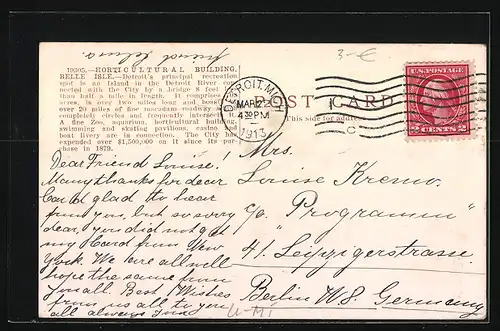 friend
3-€
19305.—HORTICULTURAL BUILDING,
BELLE ISLE.—Detroit's principal recreation
spot is an Island in the Detroit River con-
nected with the City by a bridge 8 feet
than half a mile in length. It comprises
acres, is over two miles long and boasts
over 20 miles of fine macadam roadway
completely circles and frequently intersects it.
A fine Zoo, aquarium, horticultural building,
swimming and skating pavilions, casino and
boat livery are in connection. The City has
expended over $1,500,000 on it since its pur-
chase in 1879.
DETROIT, MICH.
MAR 22
4 30 PM
1913
C
POST CARD
This side for address
U.S. POSTAGE
2 CENTS 2
Dear Friend Louise!
Many thanks for dear
Card glad to hear
from you, but so sorry
dear, you did not get
my Card from New
York. We are all well
hope the same from
You all. Best Wishes
from us all to you
all always Your
Mrs.
Louise Kremo.
c/o "Programm"
41. Leipzigerstrasse.
Berlin W8. Germany
U-MI